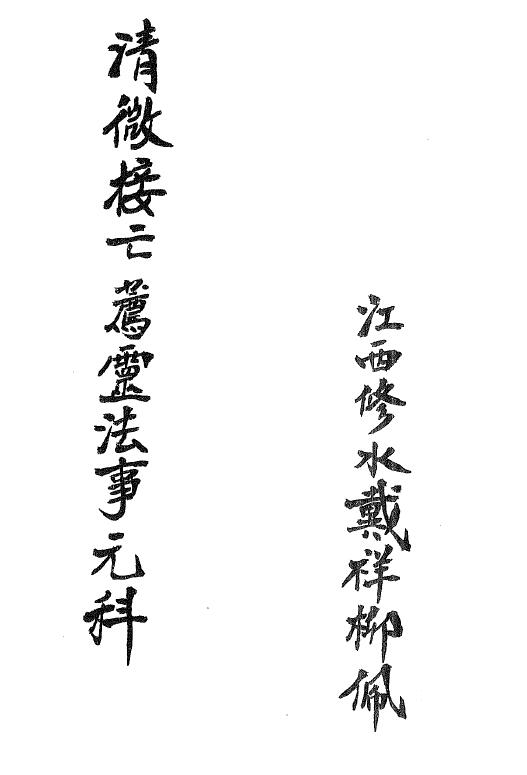 江西修水戴祥柳佩
清微接亡薦靈法事元科